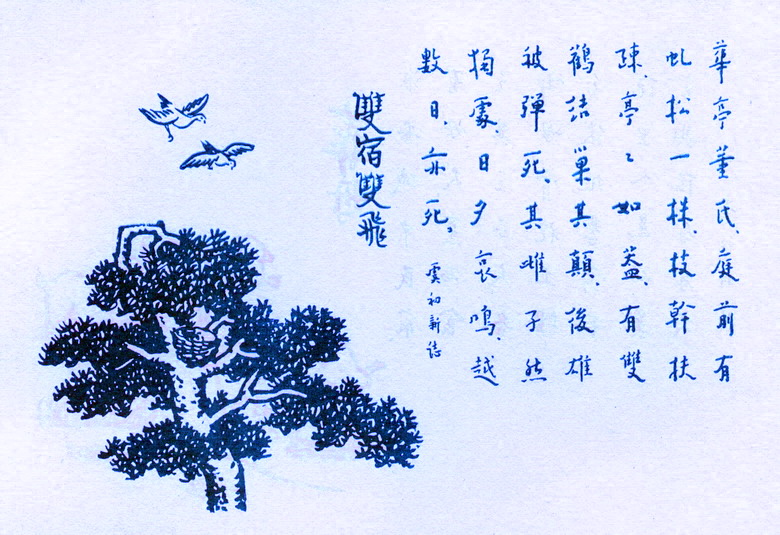 華亭董氏、庭前有
虬松一株、枝幹扶
疎、亭〻如蓋、有雙
鶴結巢其顛、後雄
被彈死、其雌孑然
獨處、日夕哀鳴、越
數日、亦死。虞初新誌
雙宿雙飛